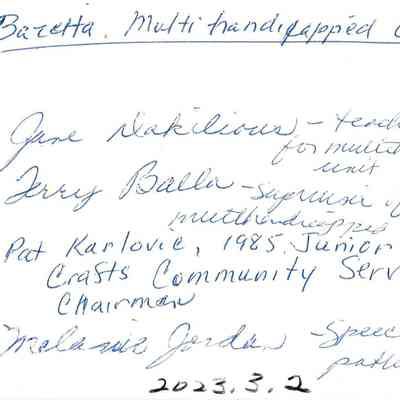 Baretta. Multihandicapped
Jane Dakilious - teach
for multih
unit
Terry Balla - Supervisor of
multihandicapped
Pat Karlovic, 1985 Junior
Crafts Community Serv
Chairman
Melanie Jordan - Speec
path
2023.3.2